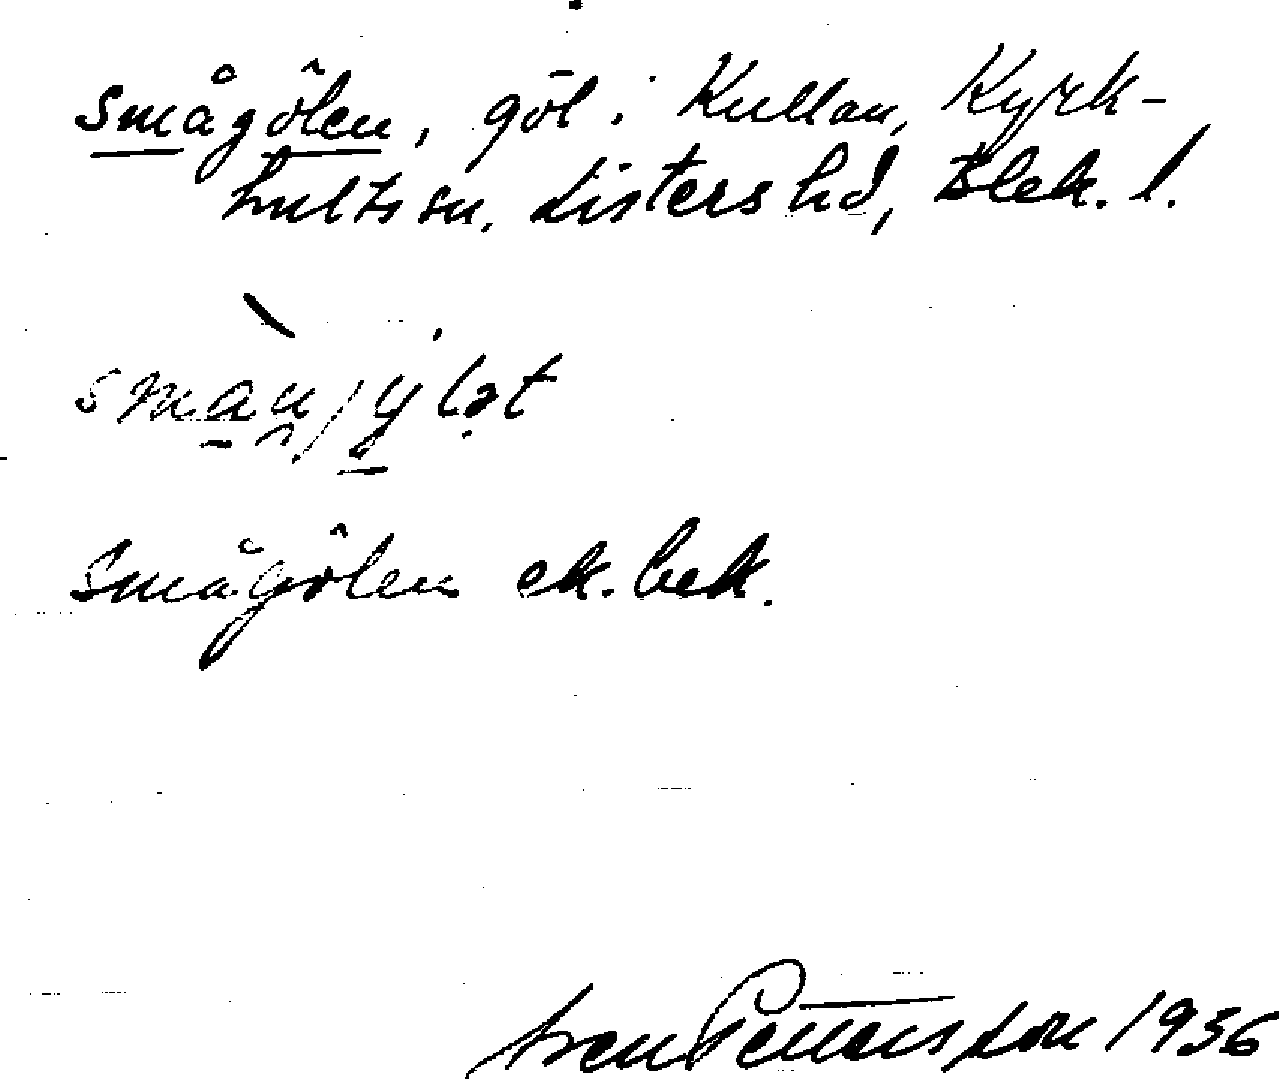 Smågölen, göl i Kullan, Kyrk-
hults sn. Listers hd, Blek. l.
Smågölen ek. bek.
Pettersson 1936